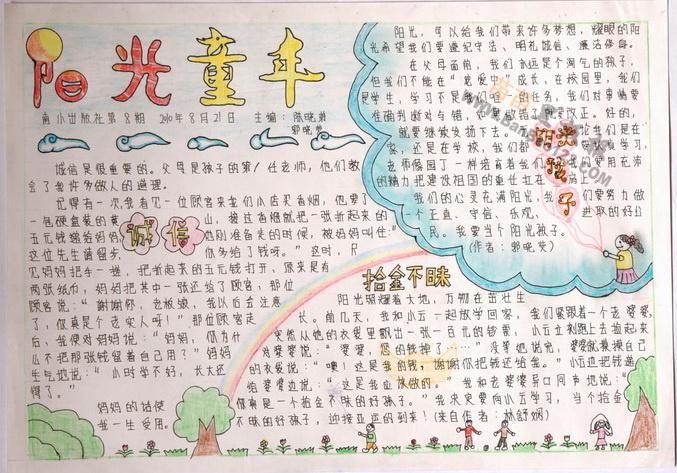 阳光童年
南小出版社第8期 2010年8月21日 主编：陈晓燕
郭晓芳
诚信
诚信是很重要的。父母是孩子的第1任老师，他们教
会了我许多做人的道理。
记得有一次，我看见一位顾客来我们小店买香烟，他要了
一包硬盒装的黄山，接过香烟就把一张折起来的
五元钱递给妈妈
刚准备走的时候，被妈妈叫住："
这位先生请留步，你多给了钱。"这时，只
见妈妈把手一摊，把折起来的五元钱打开，原来是有
两张纸币，妈妈把其中一张还给了顾客，那位
顾客说："谢谢你，老板娘，我以后会注意
了，你真是个老实人呀！"那位顾客走
后，我便对妈妈说："妈妈，你为什
么不把那张钱留着自己用？"妈妈
生气地说："小时学不好，长大还
得了。"
妈妈的话使
我一生受用。
阳光，可以给我们带来许多梦想，耀眼的阳
光希望我们要遵纪守法，明礼诚信，廉洁修身。
在父母面前，我们永远是个淘气的孩子，
但我们不能在"溺爱中"成长，在校园里，我们
是学生，学习不是我们唯一的任务，我们对事情要
准确判断对与错，
改正。好的，
就要继续发扬下去。
们是在
家，还是在学校，我们都
学习，
老师像园丁一样培育着我们
用在沛
的精力把建设祖国的重任扛在
上
我们的心灵充满阳光，我
们要努力做
一个正直、守信、乐观、
进取的好公
民。我要当个阳光孩子。
（作者：郭晓芳）
阳光孩子
拾金不昧
阳光照耀着大地，万物在茁壮生
长。前几天，我和小云一起放学回家，我们紧跟着一个老婆婆，
突然从他的衣袋里飘出一张一百元的钞票，小云立刻跑上去捡起来
对婆婆说："婆婆，您的钱掉了……"没等她说完，婆婆就摸摸自己
的衣袋说："噢！这是我的钱，谢谢你把钱还给我。"小云边把钱递
给婆婆边说："这是我应该做的。"我和老婆婆异口同声地说："
你真是一个拾金不昧的好孩子。"我决定要向小云学习，当个拾金
不昧的好孩子，迎接亚运的到来！（来自作者：林舒娴）